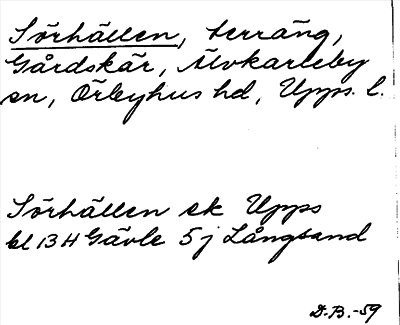 Sörhällen, terräng,
Gårdskär, Älvkarleby
sn, Örbyhus hd, Upps. l.
Sörhällen ek Upps
bl 13 H Gävle 5 j Långsand
D.B.-59